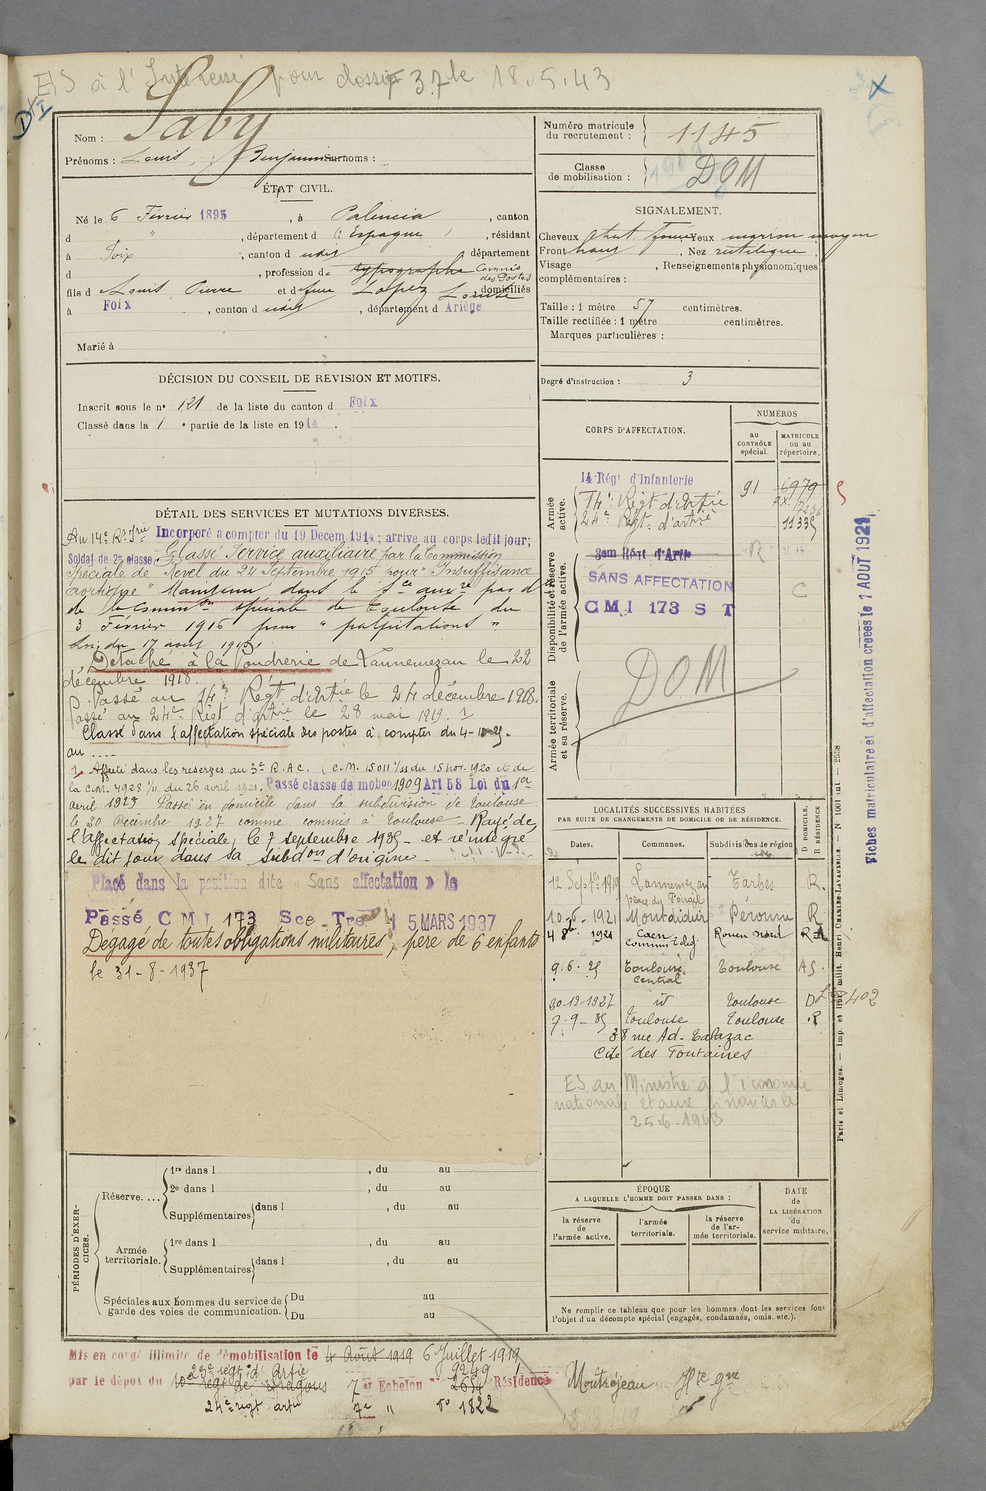 ES à l'Intéressé pour dossier 37 le 18.5.43
DI
X
Saby
Nom :
Prénoms : Louis, Benjamin Surnoms :
Numéro matricule du recrutement : 1145
Classe de mobilisation : 1909 DOM
ÉTAT CIVIL.
Né le 6 Février 1895, à Palencia, canton
d " , département d (Espagne), résidant
à Foix, canton d udit, département
d , profession de typographe Commis des Postes
fils de Louis, Pierre et de feue Lopez Louise domiciliés
à Foix, canton d udit, département d Ariège
Marié à
SIGNALEMENT.
Cheveux chat. foncé Yeux marron moyen
Front haut, Nez rectiligne
Visage , Renseignements physionomiques
complémentaires :
Taille : 1 mètre 57 centimètres.
Taille rectifiée : 1 mètre centimètres.
Marques particulières :
Degré d'instruction : 3
DÉCISION DU CONSEIL DE REVISION ET MOTIFS.
Inscrit sous le n° 121 de la liste du canton d Foix
Classé dans la 1 e partie de la liste en 1914.
DÉTAIL DES SERVICES ET MUTATIONS DIVERSES.
Au 14e Rt d'Irie Incorporé à compter du 19 Décem. 1914 ; arrivé au corps ledit jour;
Soldat de 2e classe Classé Service auxiliaire par la Commission
Spéciale de Revel du 24 Septembre 1915 pour "Insuffisance
aortique" Maintenu dans le Sce auxre par don
de la Commion spéciale de Toulouse du
3 Février 1916 pour "palpitations"
Loi du 17 août 1915
Détaché à la Poudrerie de Lannemezan le 22
décembre 1918.
Passé au 14e Régt d'Artie le 24 décembre 1918.
Passé au 24e Régt d'artie le 28 mai 1919. 1
Classé dans l'affectation spéciale des postes à compter du 4-10-21.
au ....
1 Affecté dans les réserves au 3e R.A.C. (C.M. 15011 1/11 du 15 nov. 1920 et de
la C.M. 4928 1/11 du 26 avril 1921. Passé classe de mobon 1909 Art 58 Loi du 1er
avril 1923 Passé en domicile dans la subdivision de Toulouse
le 30 Décembre 1927 comme commis à Toulouse - Rayé de
l'Affectation spéciale, le 7 septembre 1935 - et réintégré
le dit jour dans sa subdon d'origine -
Placé dans la position dite « Sans affectation » le
Passé C M I 173 Sce Tre 15 MARS 1937
Dégagé de toutes obligations militaires, père de 6 enfants
le 31-8-1937
CORPS D'AFFECTATION.
NUMÉROS
au CONTRÔLE spécial.
MATRICULE ou au répertoire.
Armée active.
14 Régt d'Infanterie
14e Régt d'Artie
24e Régt d'artie
91
6979
11335
Disponibilité et réserve de l'armée active.
3em Régt d'Artie
SANS AFFECTATION
C M I 173 S T
R
C
Armée territoriale et sa réserve.
DOM
LOCALITÉS SUCCESSIVES HABITÉES
PAR SUITE DE CHANGEMENTS DE DOMICILE OU DE RÉSIDENCE.
Dates. Communes. Subdivisions de région D DOMICILE. R RÉSIDENCE
12 Sepbre 1919 Lannemezan Tarbes R.
10-5-1921 Montdidier Péronne R
4 8bre 1921 Caen Rouen Nord R
9.6.25 Toulouse Central Toulouse AS.
30-12-1927 id Toulouse D 402
7-9-35 Toulouse Toulouse R
38 rue Ad. Calazac
Cité des Fontaines
ES au Ministre à l'économie
nationale et aux finances le
25.6-1943
Fiches matriculaire et d'affectation créées le 7 AOUT 1924
Paris et Limoges. — Imp. et libr. milit. Henri CHARLES-LAVAUZELLE.
PÉRIODES D'EXERCICES.
Réserve....
1re dans l , du au
2e dans l , du au
Supplémentaires dans l , du au
Armée territoriale.
1re dans l , du au
Supplémentaires dans l , du au
Spéciales aux hommes du service de garde des voies de communication.
Du au
Du au
ÉPOQUE
A LAQUELLE L'HOMME DOIT PASSER DANS :
la réserve de l'armée active.
l'armée territoriale.
la réserve de l'armée territoriale.
DATE DE LA LIBÉRATION du service militaire.
Ne remplir ce tableau que pour les hommes dont les services font
l'objet d'un décompte spécial (engagés, condamnés, omis, etc.).
Mis en congé illimité de démobilisation le 4 Août 1919 6 Juillet 1919
par le dépôt du 10e régt de Dragons 7e Echelon n° 2654 9249 Résidence Montréjeau Hte Gne
23e régt d'Artie
24e régt artie 7e " n° 1822